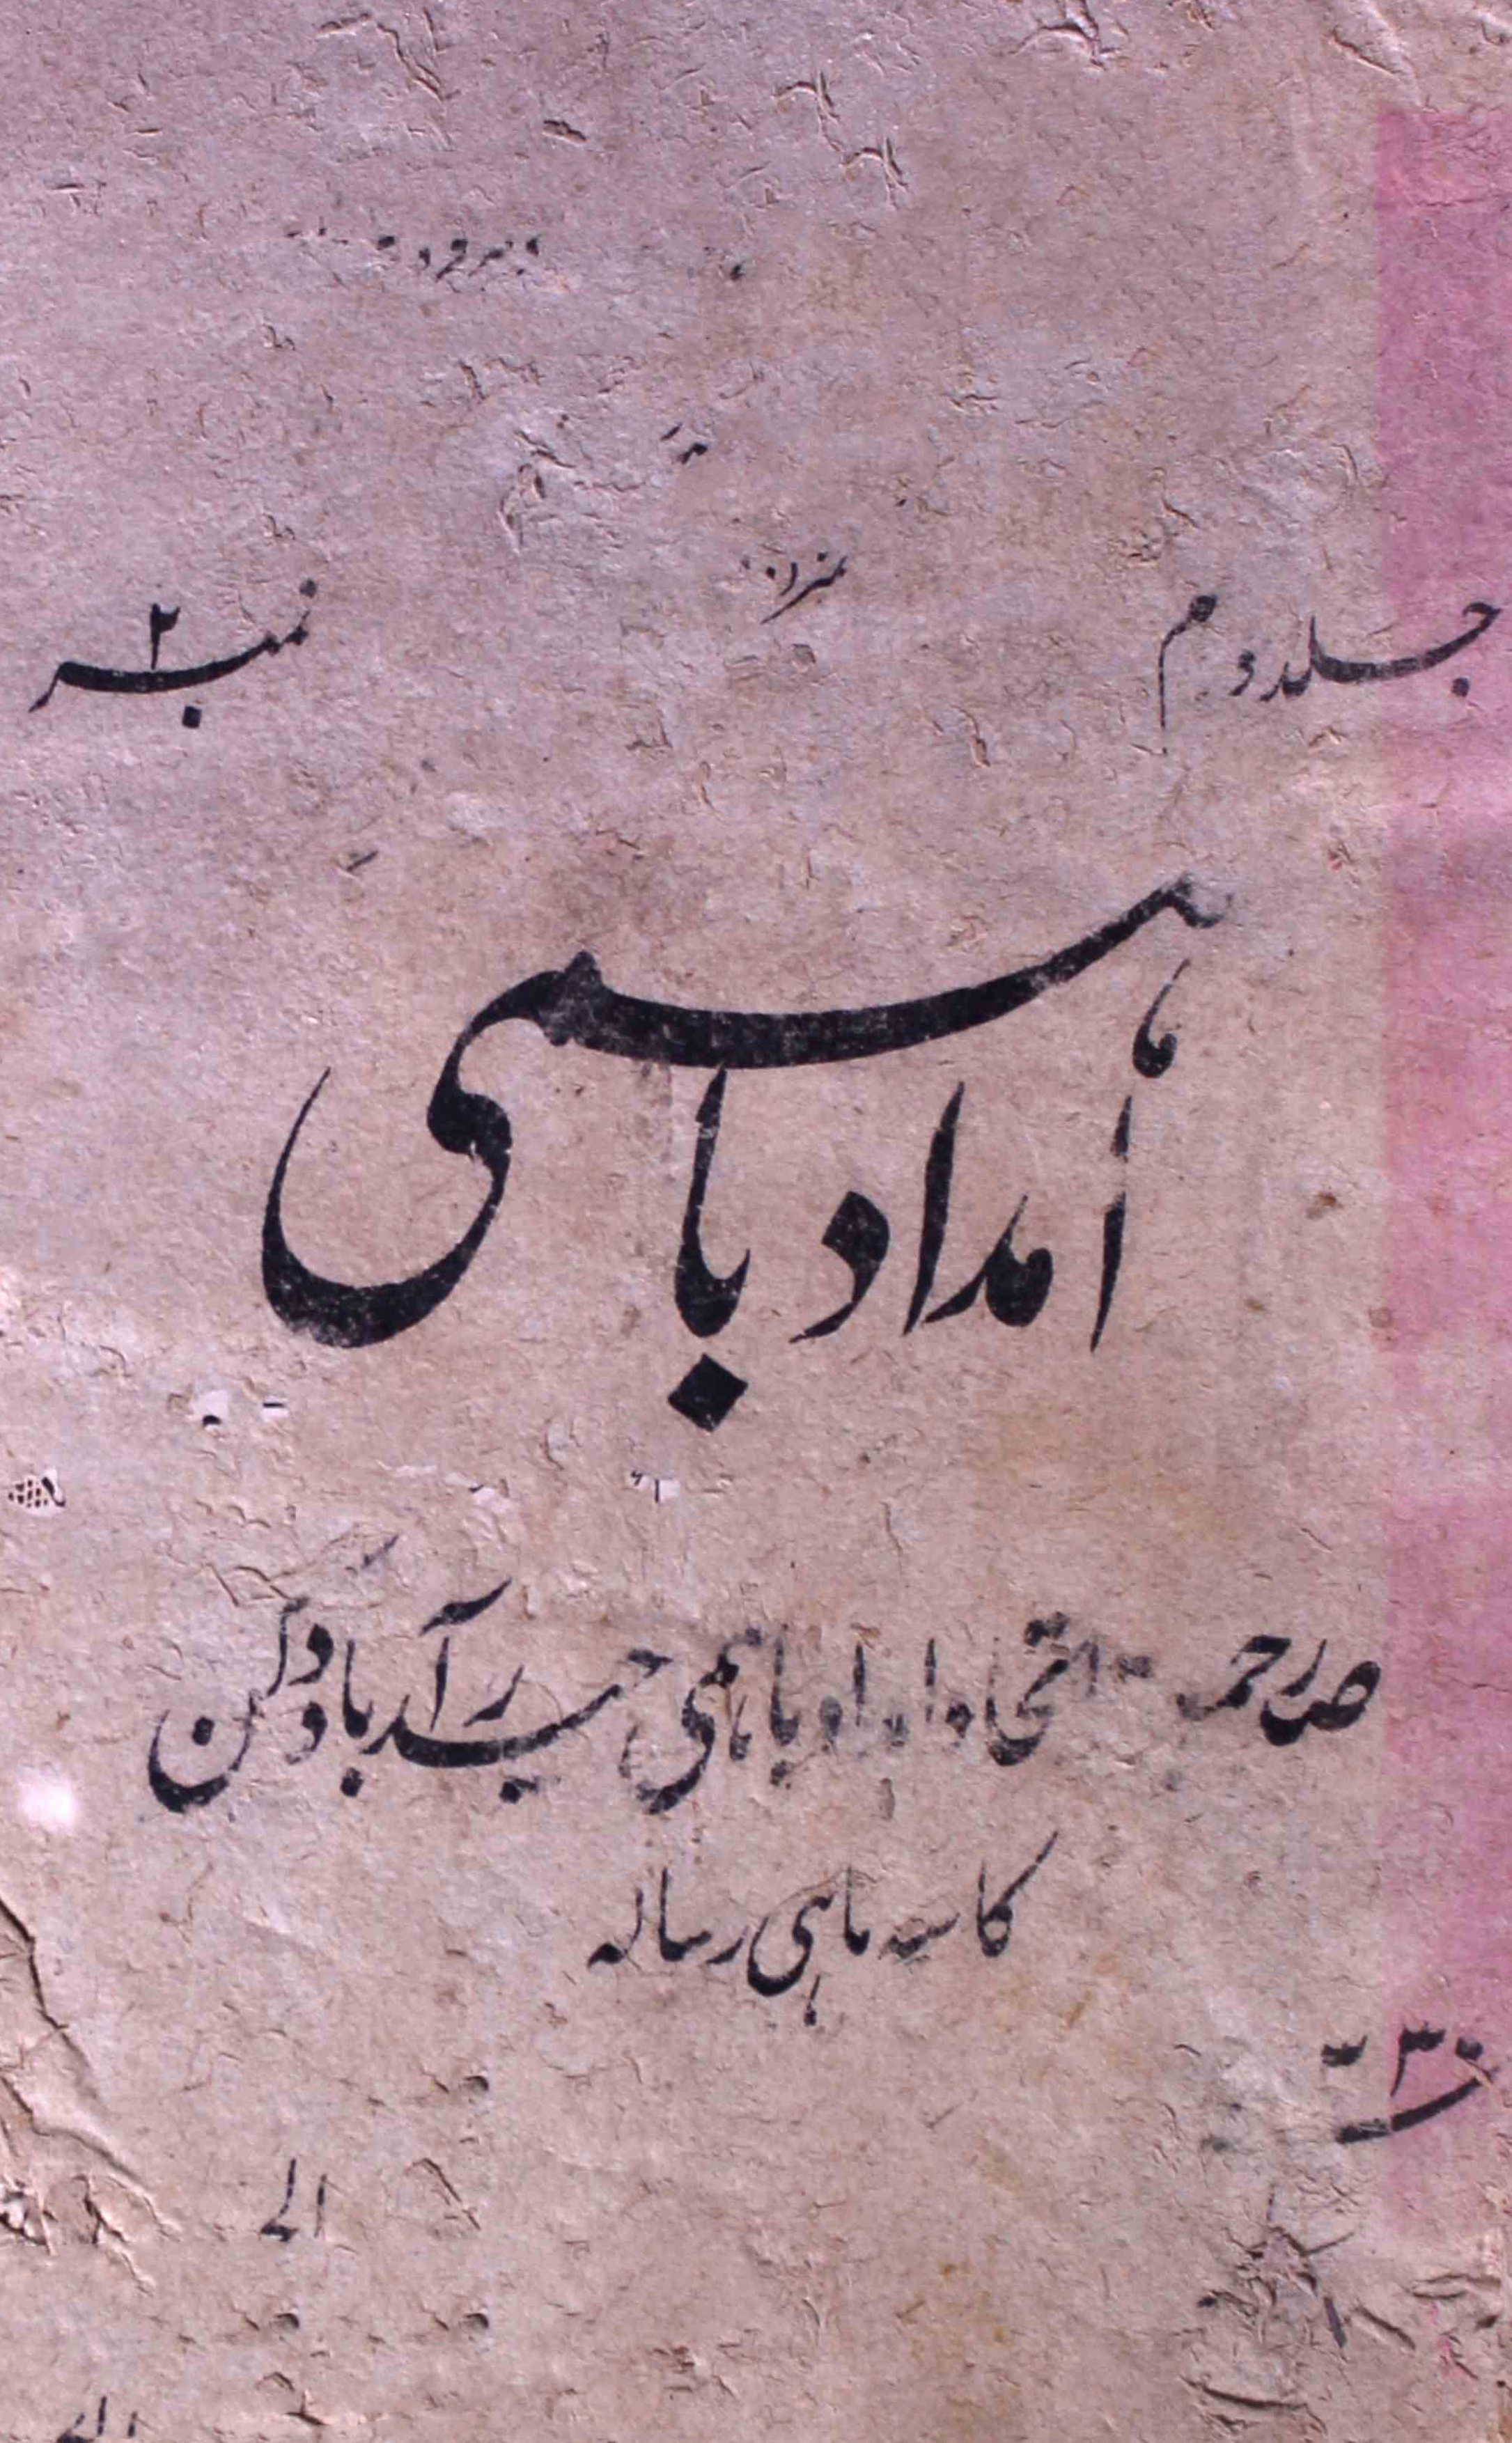 جلد دوم نمبر ۲
امداد باہمی
صدر انجمن اتحاد امداد باہمی حیدرآباد دکن
کا سہ ماہی رسالہ